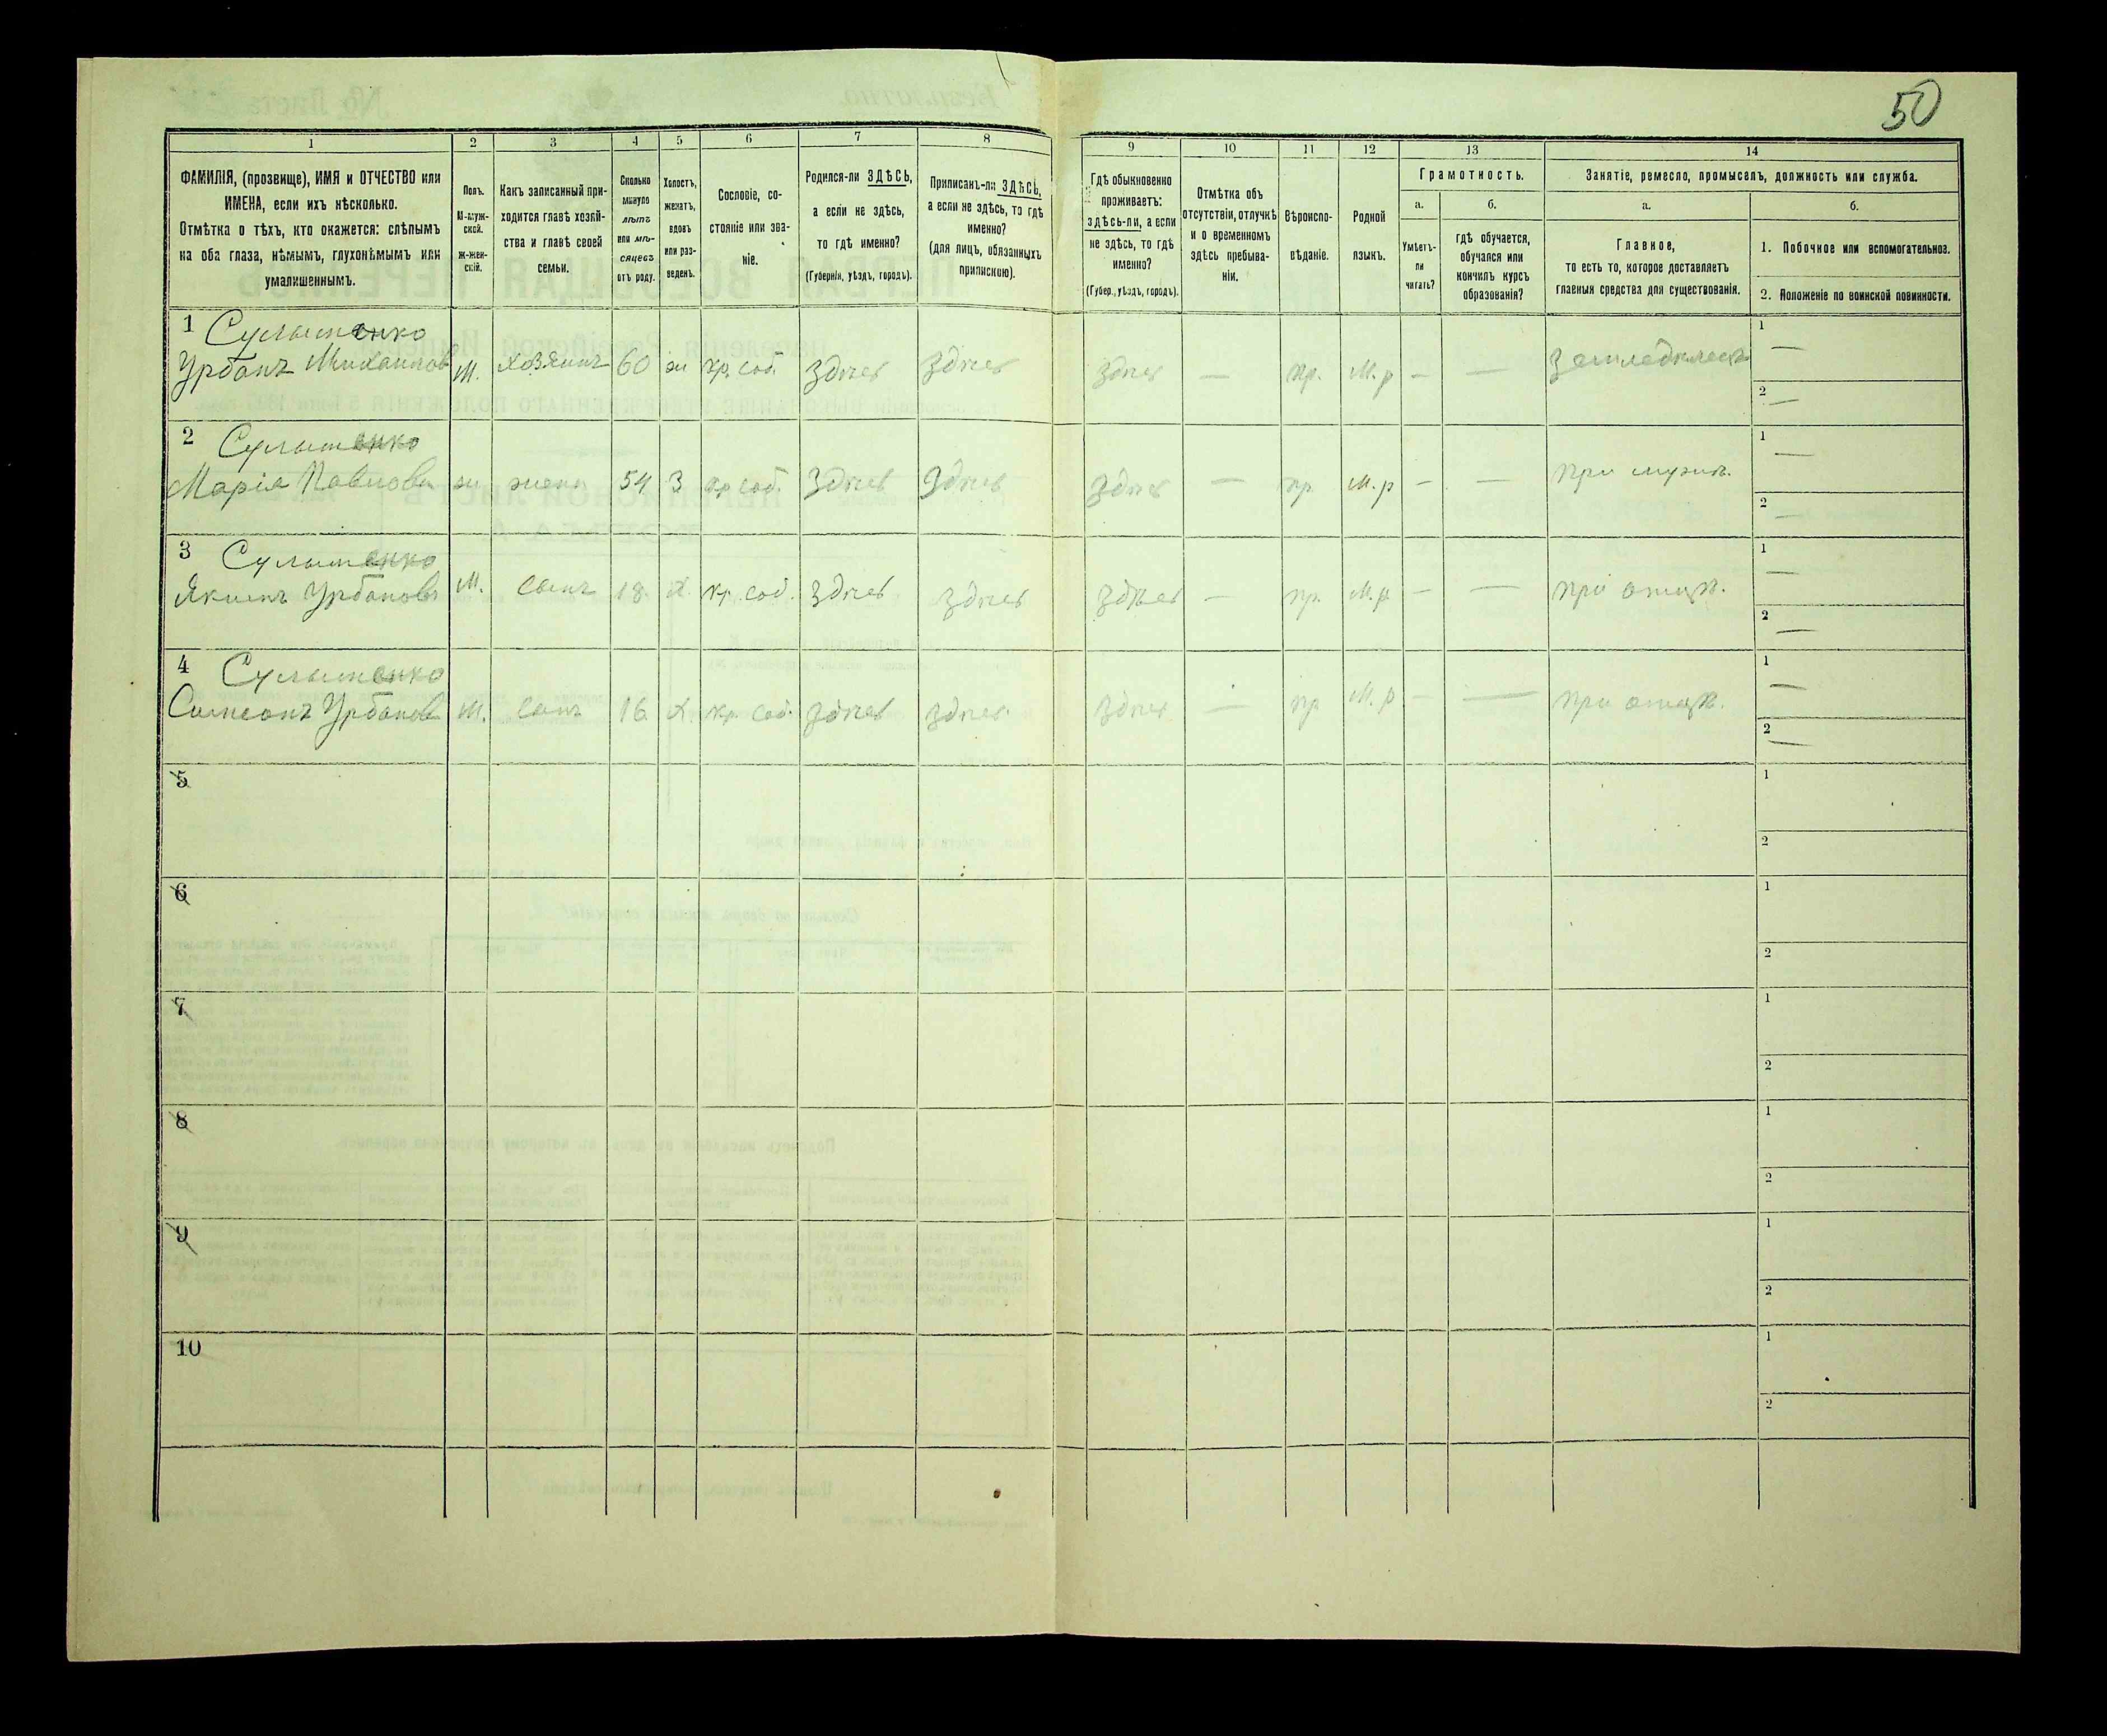 50
1
2
3
4
5
6
7
8
9
10
11
12
13
14
ФАМИЛІЯ, (прозвище), ИМЯ и ОТЧЕСТВО или
ИМЕНА, если ихъ нѣсколько.
Отмѣтка о тѣхъ, кто окажется: слѣпымъ
на оба глаза, нѣмымъ, глухонѣмымъ или
умалишеннымъ.
Полъ.
М-муж-
ской.
ж-жен-
скій.
Какъ записанный при-
ходится главѣ хозяй-
ства и главѣ своей
семьи.
Сколько
минуло
лѣтъ
или мѣ-
сяцевъ
отъ роду.
Холостъ,
женатъ,
вдовъ
или раз-
веденъ.
Сословіе, со-
стояніе или зва-
ніе.
Родился-ли ЗДѢСЬ,
а если не здѣсь,
то гдѣ именно?
(Губернія, уѣздъ, городъ).
Приписанъ-ли ЗДѢСЬ,
а если не здѣсь, то гдѣ
именно?
(для лицъ, обязанныхъ
припискою).
Гдѣ обыкновенно
проживаетъ:
здѣсь-ли, а если
не здѣсь, то гдѣ
именно?
(Губер., уѣздъ, городъ).
Отмѣтка объ
отсутствіи, отлучкѣ
и о временномъ
здѣсь пребыва-
ніи.
Вѣроиспо-
вѣданіе.
Родной
языкъ.
Грамотность.
а.
Умѣетъ-
ли
читать?
б.
гдѣ обучается,
обучался или
кончилъ курсъ
образованія?
Занятіе, ремесло, промыселъ, должность или служба.
а.
Главное,
то есть то, которое доставляетъ
главныя средства для существованія.
б.
1. Побочное или вспомогательное.
2. Положеніе по воинской повинности.
1
Урбанъ Михаиловъ М. хозяинъ 60 ж кр. соб. здѣсь здѣсь здѣсь — пр. М.р — — земледѣлецъ 1 —
2 —
2
Марія Павлова ж жена 54 З кр соб. здѣсь здѣсь здѣсь — пр М.р — — при мужѣ. 1 —
2 —
3
Якимъ Урбановъ М. сынъ 18. Х. кр. соб. здѣсь здѣсь здѣсь — пр. М.р — — при отцѣ. 1 —
2 —
4
Симеонъ Урбановъ М. сынъ 16 Х. кр. соб. здѣсь здѣсь здѣсь — пр М.р — — при отцѣ. 1 —
2 —
5 1
2
6 1
2
7 1
2
8 1
2
9 1
2
10 1
2